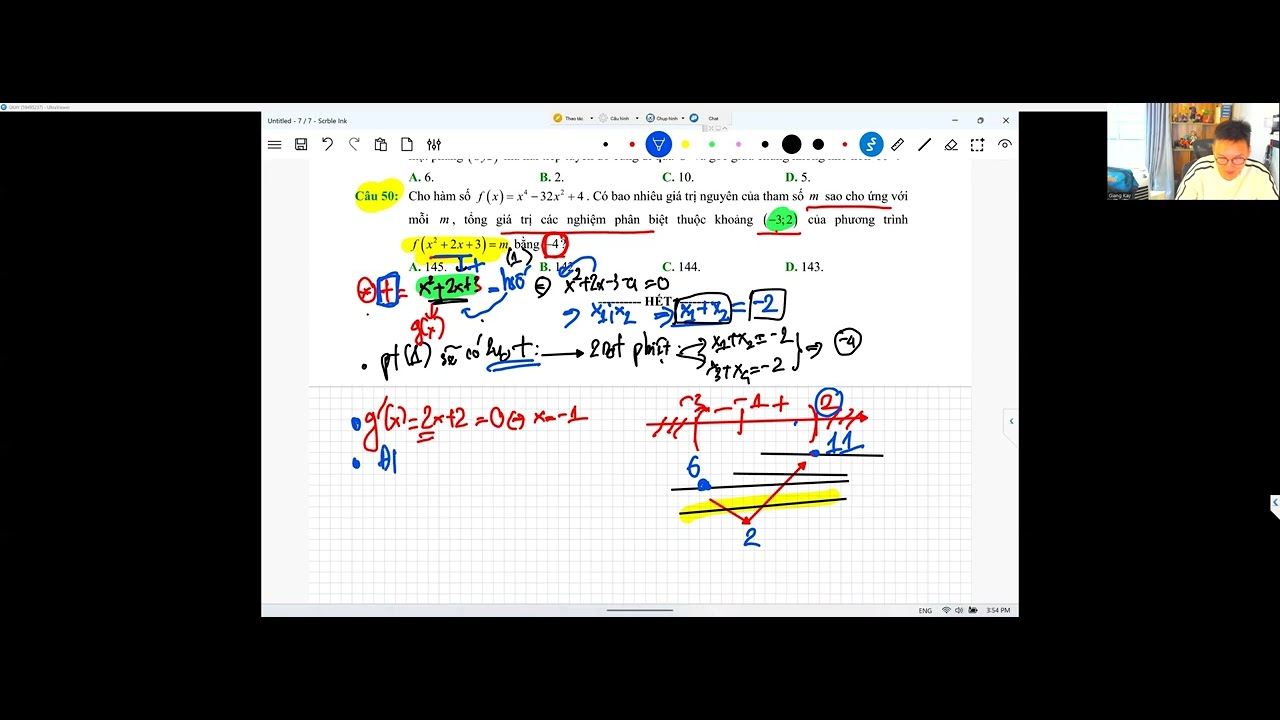 Untitled - 7 / 7 - Scrble Ink
Thao tác Cấu hình Chụp hình Chat
A. 6. B. 2. C. 10. D. 5.
Câu 50: Cho hàm số f(x) = x⁴ − 32x² + 4. Có bao nhiêu giá trị nguyên của tham số m sao cho ứng với
mỗi m, tổng giá trị các nghiệm phân biệt thuộc khoảng (−3;2) của phương trình
f(x² + 2x + 3) = m bằng −4?
(1)
A. 145. B. C. 144. D. 143.
t = x²+2x+3 = hsố ⇔ x²+2x+3-a = 0
---------- HẾT
⇒ x₁; x₂ ⇒ x₁+x₂ = -2
g(x)
• pt(1) sẽ có 2 no t: → 2 no pbiệt: x₁+x₂=-2 ⇒ -4
x₃+x₄=-2
• g'(x)=2x+2=0⇔x=-1
-3 - -1 + 2
11
•
6
2
ENG 3:54 PM
Giang Kay